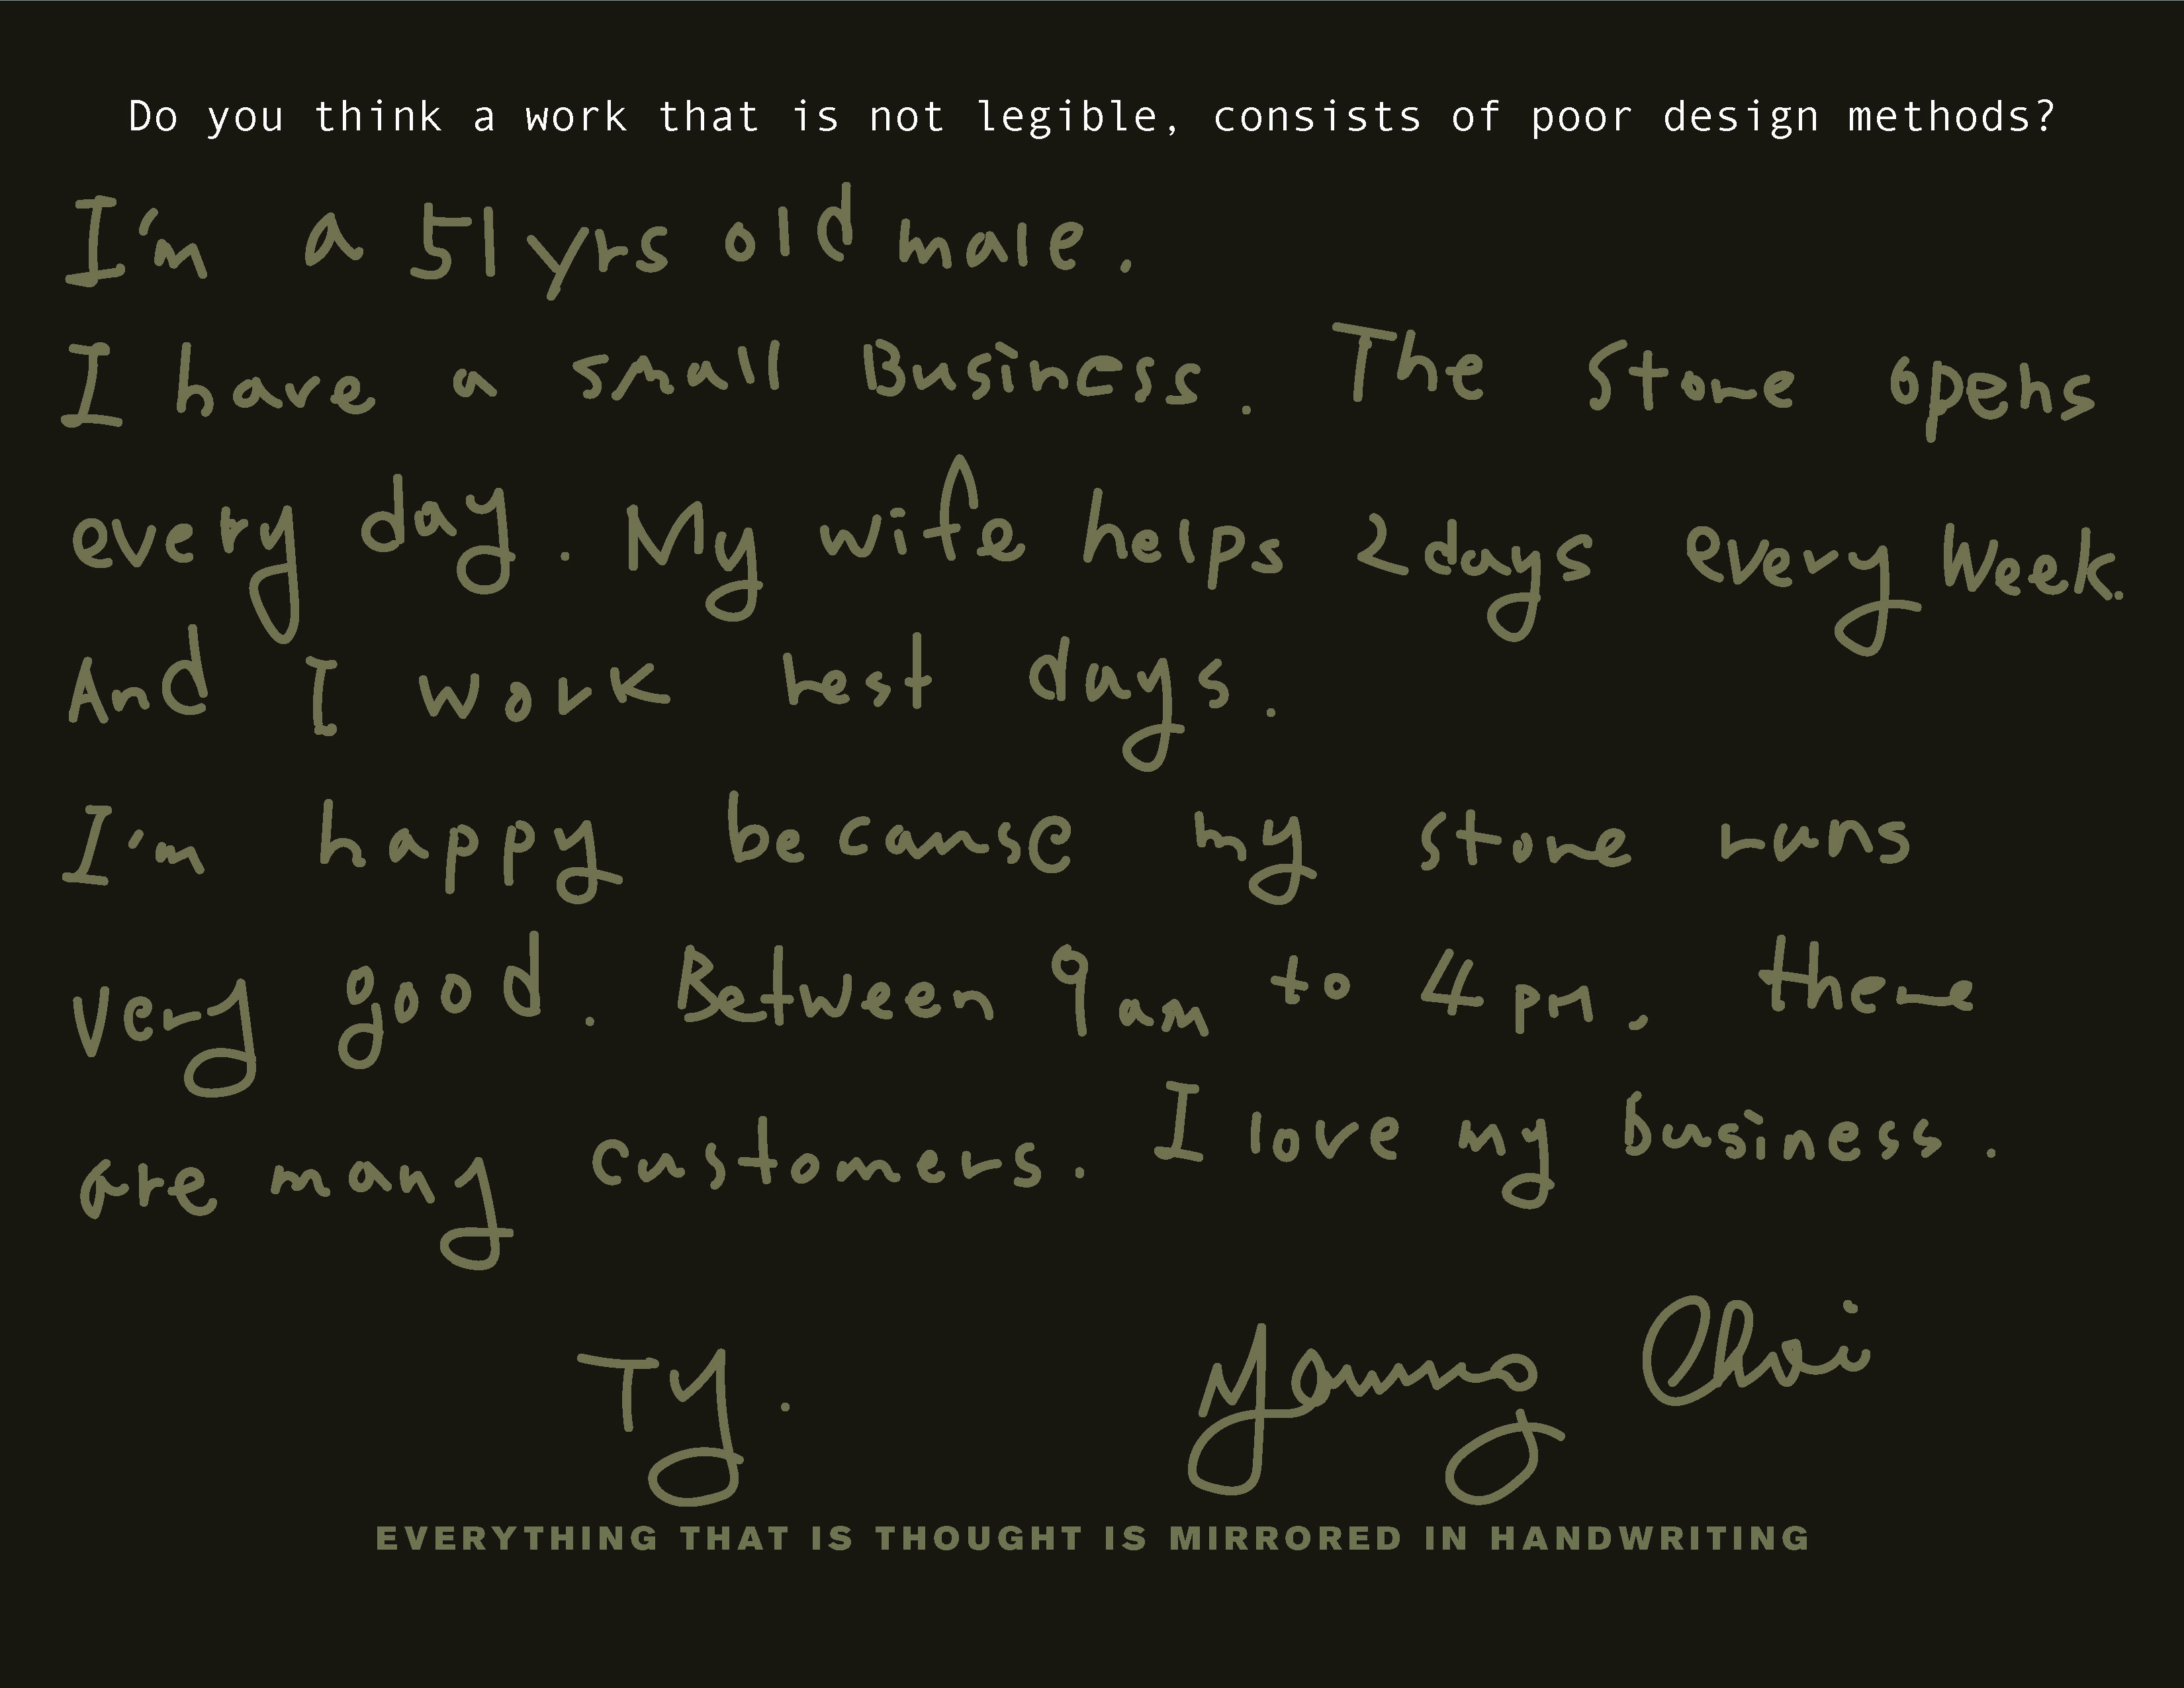 Do you think a work that is not legible, consists of poor design methods?
I'm a 51yrs old male.
I have a small Business. The Store opens
every day. My wife helps 2days every Week.
And I work rest days.
I'm happy because my store runs
very good. Between 9am to 4pm, there
are many customers. I love my business.
Ty. Young Choi
EVERYTHING THAT IS THOUGHT IS MIRRORED IN HANDWRITING